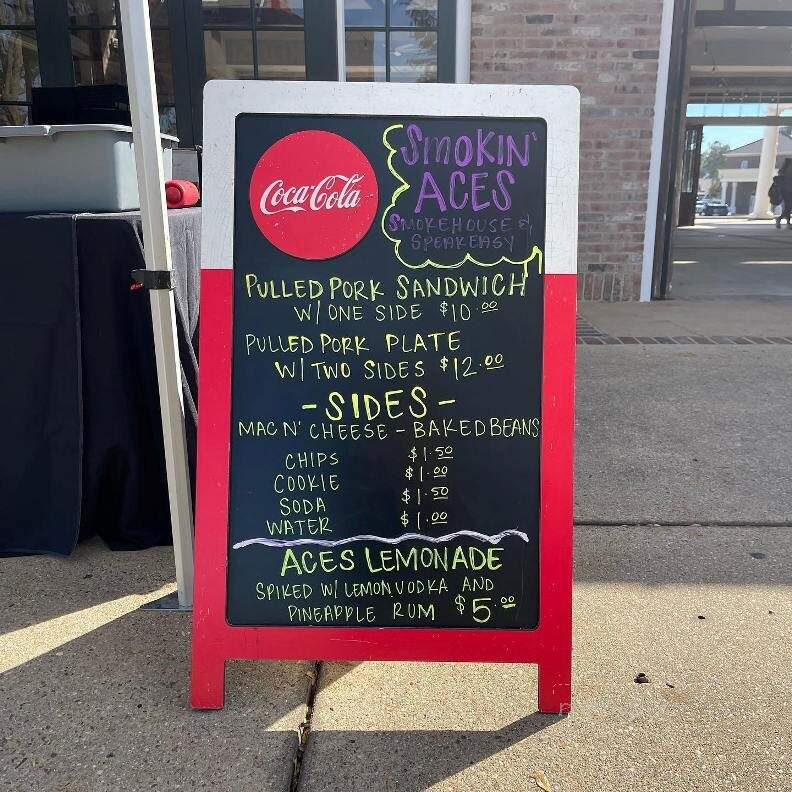 Coca-Cola
SMOKIN'
ACES
SMOKEHOUSE &
SPEAKEASY
PULLED PORK SANDWICH
W/ ONE SIDE $10.00
PULLED PORK PLATE
W/ TWO SIDES $12.00
- SIDES -
MAC N' CHEESE - BAKED BEANS
CHIPS $1.50
COOKIE $1.00
SODA $1.50
WATER $1.00
ACES LEMONADE
SPIKED W/ LEMON VODKA AND
PINEAPPLE RUM $5.00